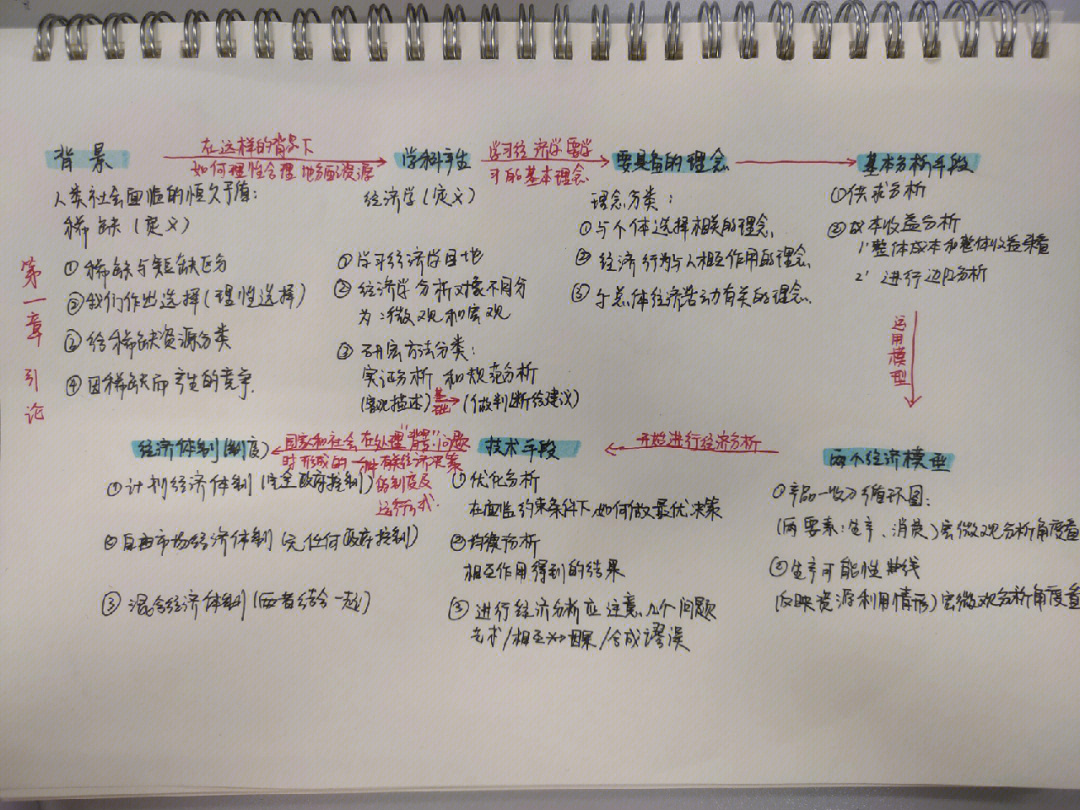 第一章 引论
背景
在这样的背景下
如何理性合理地分配资源
学科产生
学习经济学要学
习的基本理念
要具备的理念
基本分析手段
人类社会面临的恒久矛盾:
稀缺(定义)
①稀缺与短缺区分
②我们作出选择(理性选择)
③给稀缺资源分类
④因稀缺而产生的竞争.
经济学(定义)
①学习经济学目地
②经济学分析对象不同分
为:微观和宏观
③研究方法分类:
实证分析 和规范分析
(客观描述) 基础 (做判断给建议)
理念分类:
①与个体选择相关的理念.
②经济行为与人相互作用的理念
③与总体经济活动有关的理念.
①供求分析
②成本收益分析
1'整体成本和整体收益
2'进行边际分析
运用模型
两个经济模型
①产品—收入循环图:
(两要素:生产、消费)宏微观分析角度
②生产可能性曲线
(反映资源利用情形)宏微观分析角度
开始进行经济分析
技术手段
①优化分析
在面临约束条件下,如何做最优决策
②均衡分析
相互作用得到的结果
③进行经济分析应注意几个问题
艺术/相互 因果/合成谬误
国家和社会在处理"稀缺"问题
时形成的一种有关经济决策
的制度及
运行方式.
经济体制(制度)
①计划经济体制(完全政府控制)
②自由市场经济体制(无任何政府控制)
③混合经济体制(两者结合一起)